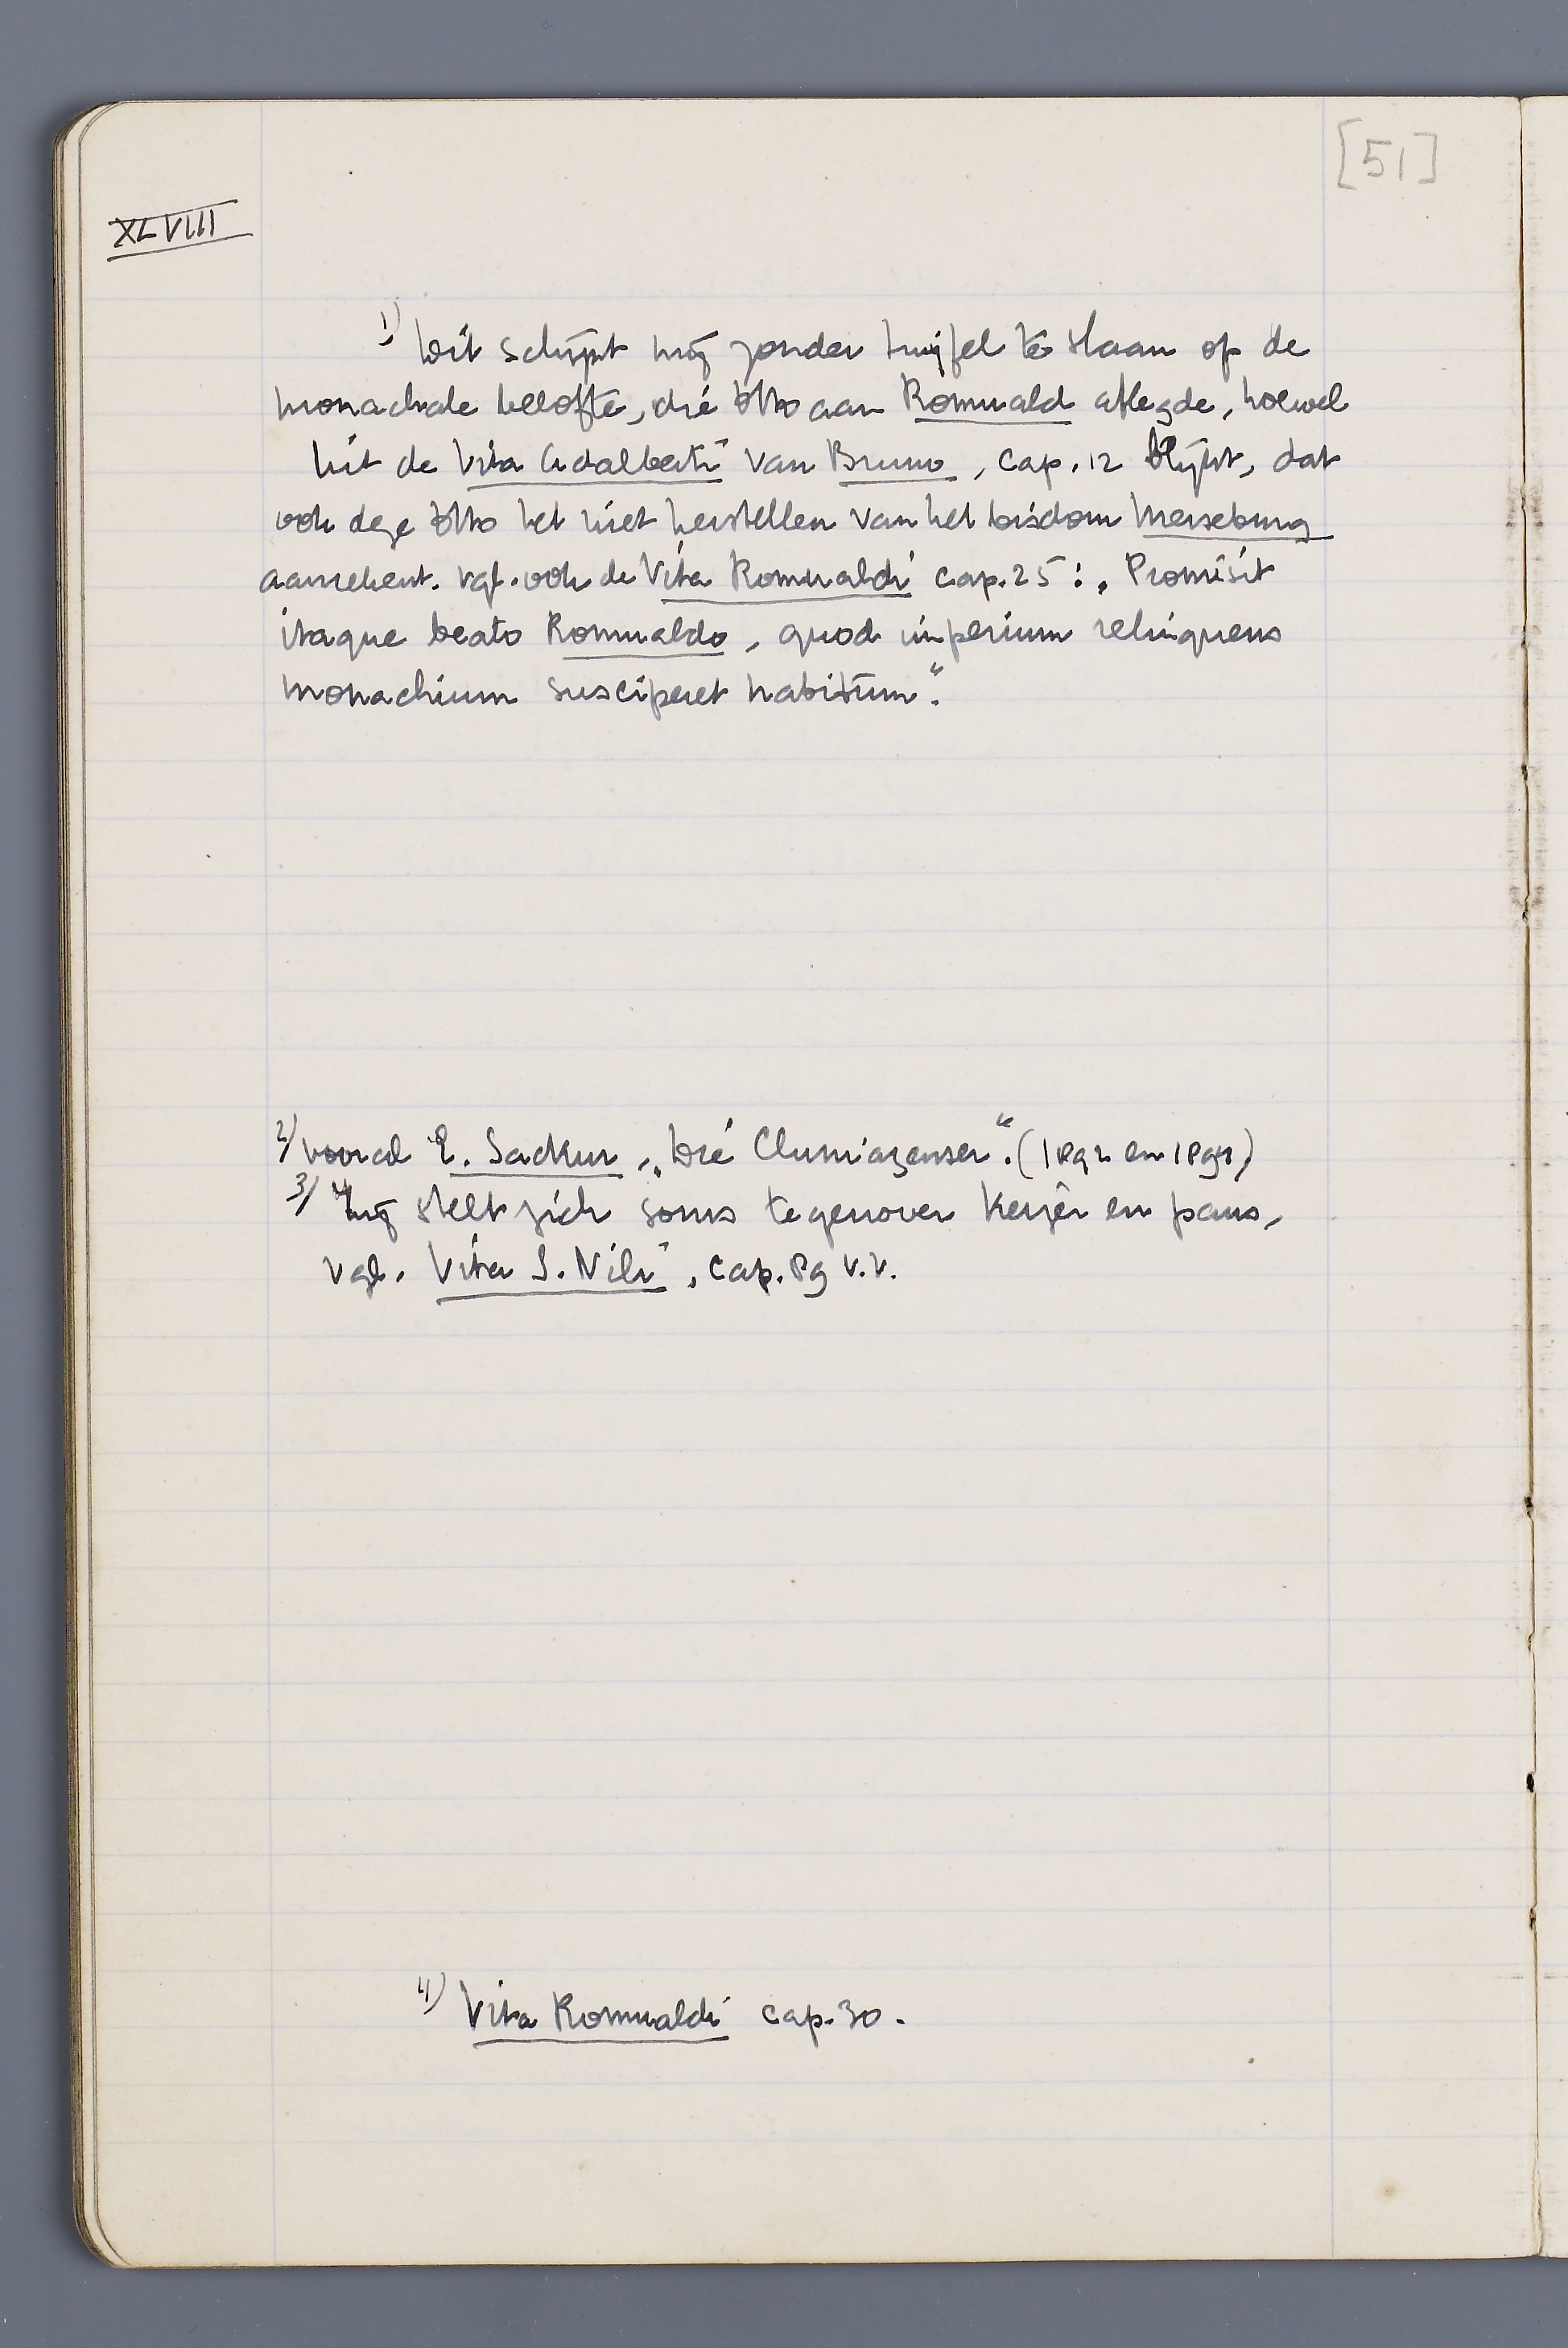 [51]
XLVIII
1) Dit schijnt mij zonder twijfel te slaan op de
monachale belofte, die Otto aan Romuald aflegde, hoewel
uit de Vita Adalberti van Bruno, cap. 12 blijkt, dat
ook deze Otto het niet herstellen van het bisdom Merseburg
aanrekent. Vgl. ook de Vita Romualdi cap. 25: „Promisit
itaque beato Romualdo, quod imperium relinquens
monachium susciperet habitum“.
2) vooral E. Sackur, „Die Cluniazenser“. (1892 en 1894)
3) Hij stelt zich soms tegenover keizer en paus,
vgl. Vita S. Nili, cap. 89 v.v.
4) Vita Romualdi cap. 30.